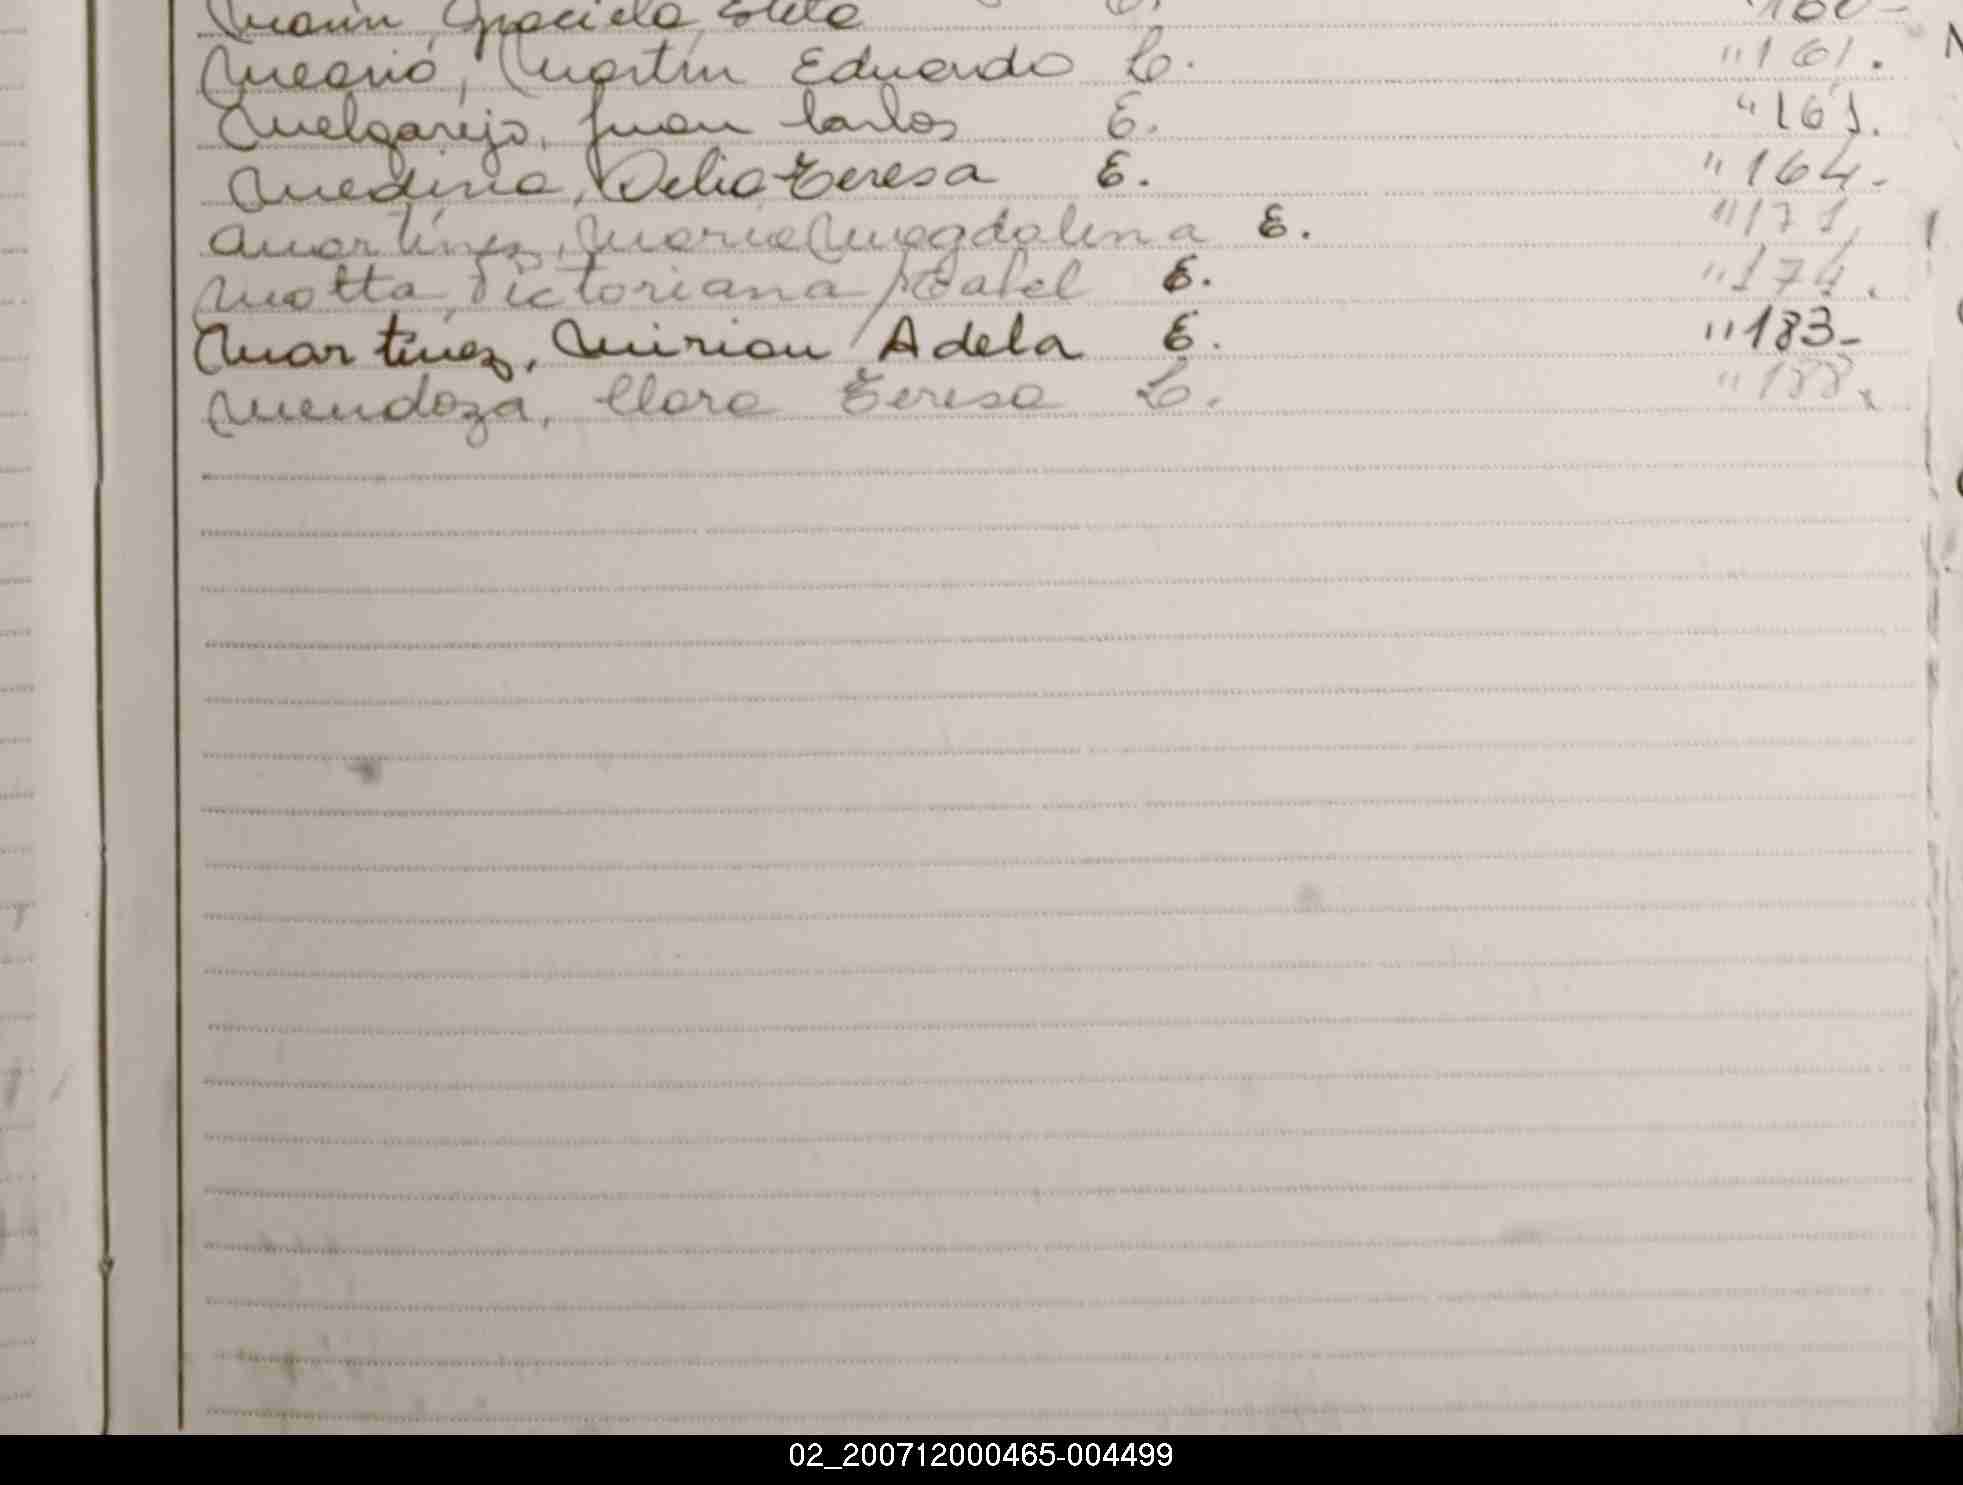 Marin, Graciela Estela "160-
Meario, Martin Eduardo E. "161.
Melgarejo, Juan Carlos E. "163.
Medina, Delia Teresa E. "164-
Martinez, Maria Magdalena E. "171,
Motta, Victoriana Isabel E. "174.
Martinez, Mirian Adela E. "183-
Mendoza, Clara Teresa E. "188.
02_200712000465-004499